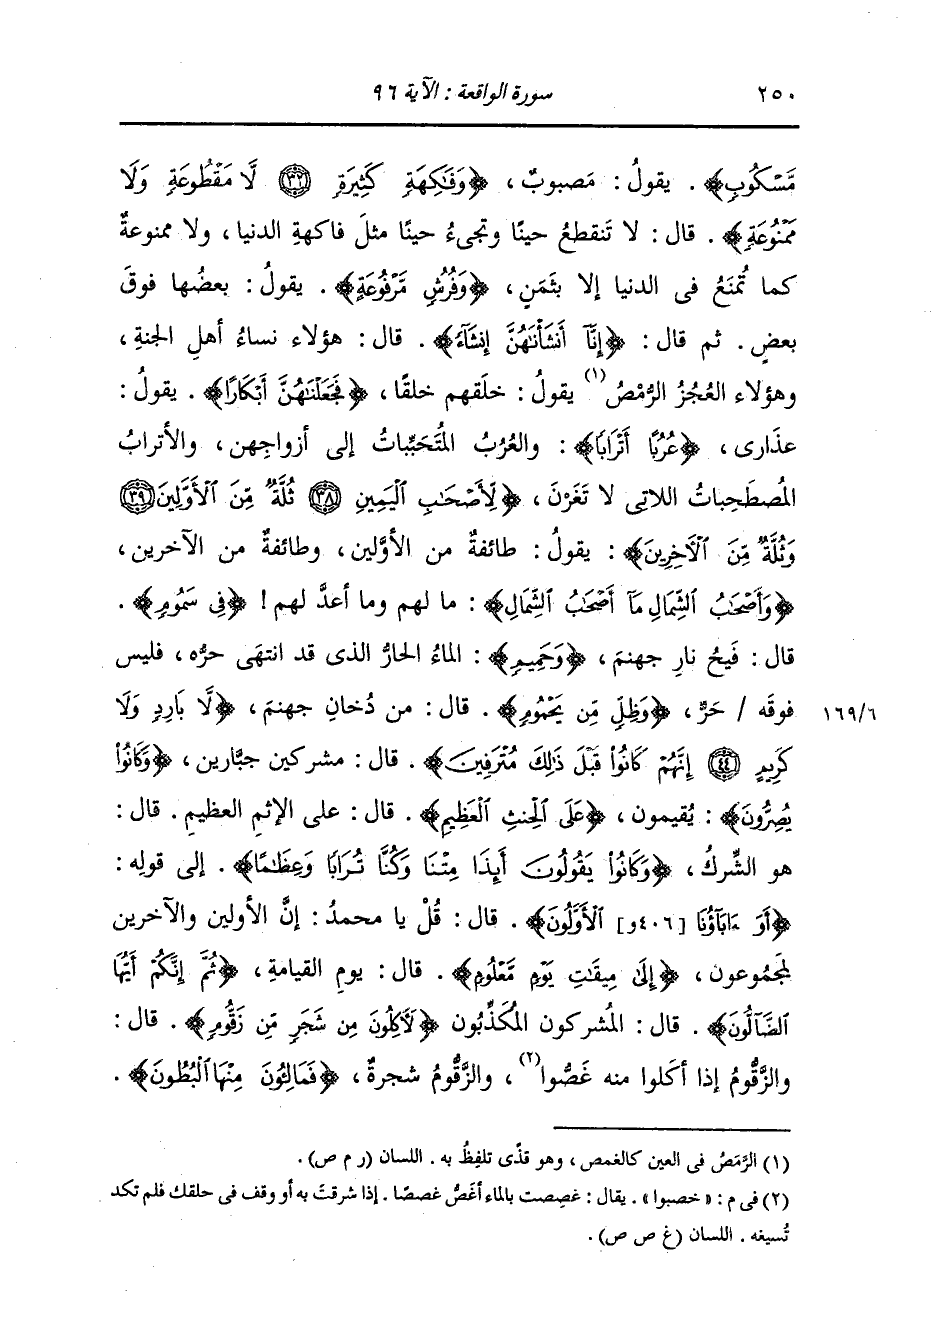 ٢٥٠ سورة الواقعة : الآية ٩٦
مَّسْكُوبٍ﴾ . يقولُ : مَصبوبٌ ، ﴿وَفَٰكِهَةٍ كَثِيرَةٍ ﴿٣٢﴾ لَّا مَقْطُوعَةٍ وَلَا
مَمْنُوعَةٍ﴾ . قال : لا تَنقطعُ حينًا وتجىءُ حينًا مثلَ فاكهةِ الدنيا ، ولا ممنوعةٌ
كما تُمنَعُ فى الدنيا إلا بثَمَنٍ ، ﴿وَفُرُشٍ مَّرْفُوعَةٍ﴾ . يقولُ : بعضُها فوقَ
بعضٍ . ثم قال : ﴿إِنَّآ أَنشَأْنَٰهُنَّ إِنشَآءً﴾ . قال : هؤلاء نساءُ أهلِ الجنةِ ،
وهؤلاء العُجُزُ الرُّمْصُ(١) يقولُ : خلَقهم خلقًا ، ﴿فَجَعَلْنَٰهُنَّ أَبْكَارًا﴾ . يقولُ :
عذَارى ، ﴿عُرُبًا أَتْرَابًا﴾ : والعُرُبُ المُتَحَبِّباتُ إلى أزواجِهن ، والأترابُ
المُصطَحِباتُ اللاتى لا تَغَرْنَ ، ﴿لِّأَصْحَٰبِ ٱلْيَمِينِ ﴿٣٨﴾ ثُلَّةٌ مِّنَ ٱلْأَوَّلِينَ ﴿٣٩﴾
وَثُلَّةٌ مِّنَ ٱلْآخِرِينَ﴾ : يقولُ : طائفةٌ من الأوَّلين ، وطائفةٌ من الآخرين ،
﴿وَأَصْحَٰبُ ٱلشِّمَالِ مَآ أَصْحَٰبُ ٱلشِّمَالِ﴾ : ما لهم وما أعدَّ لهم ! ﴿فِى سَمُومٍ﴾ .
قال : فَيحُ نارِ جهنمَ ، ﴿وَحَمِيمٍ﴾ : الماءُ الحارُّ الذى قد انتهَى حرُّه ، فليس
فوقَه / حَرٌّ ، ﴿وَظِلٍّ مِّن يَحْمُومٍ﴾ . قال : من دُخانِ جهنمَ ، ﴿لَّا بَارِدٍ وَلَا ١٦٩/٦
كَرِيمٍ ﴿٤٤﴾ إِنَّهُمْ كَانُوا۟ قَبْلَ ذَٰلِكَ مُتْرَفِينَ﴾ . قال : مشركين جبَّارين ، ﴿وَكَانُوا۟
يُصِرُّونَ﴾ : يُقيمون ، ﴿عَلَى ٱلْحِنثِ ٱلْعَظِيمِ﴾ . قال : على الإثمِ العظيمِ . قال :
هو الشِّركُ ، ﴿وَكَانُوا۟ يَقُولُونَ أَئِذَا مِتْنَا وَكُنَّا تُرَابًا وَعِظَٰمًا﴾ . إلى قولِه :
﴿أَوَ ءَابَآؤُنَا [٤٠٦و] ٱلْأَوَّلُونَ﴾ . قال : قُلْ يا محمدُ : إنَّ الأولين والآخرين
لمجموعون ، ﴿إِلَىٰ مِيقَٰتِ يَوْمٍ مَّعْلُومٍ﴾ . قال : يومِ القيامةِ ، ﴿ثُمَّ إِنَّكُمْ أَيُّهَا
ٱلضَّآلُّونَ﴾ . قال : المُشركون المُكَذِّبون ﴿لَآكِلُونَ مِن شَجَرٍ مِّن زَقُّومٍ﴾ . قال :
والزَّقُّومُ إذا أكلوا منه غَصُّوا(٢) ، والزَّقُّومُ شجرةٌ ، ﴿فَمَالِئُونَ مِنْهَا ٱلْبُطُونَ﴾ .
(١) الرَّمَصُ فى العين كالغمص ، وهو قذًى تلفِظُ به . اللسان (ر م ص) .
(٢) فى م : « خصبوا » . يقال : غصِصت بالماء أغَصُّ غصصًا . إذا شرقتَ به أو وقف فى حلقك فلم تكد
تُسيغه . اللسان (غ ص ص) .